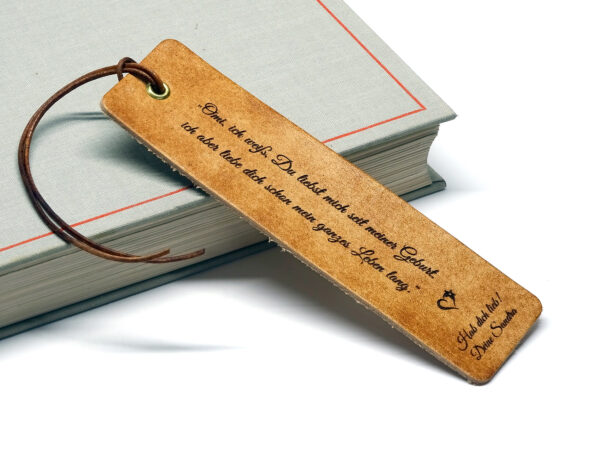 „Omi, ich weiß, Du liebst mich seit meiner Geburt,
ich aber liebe dich schon mein ganzes Leben lang."
Hab dich lieb!
Deine Sandra